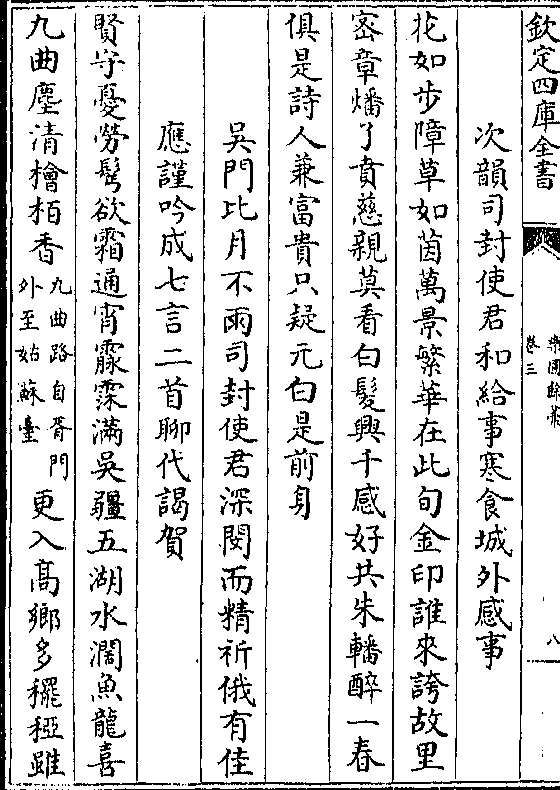 欽定四庫全書
樂圃餘藁
卷三
八
次韻司封使君和給事寒食城外感事
花如步障草如茵萬景繁華在此旬金印誰來誇故里
宻章燔了賁慈親莫看白髮興千感好共朱轓醉一春
俱是詩人兼富貴只疑元白是前身
吳門比月不雨司封使君深閔而精祈俄有佳
應謹吟成七言二首聊代謁賀
賢守憂勞鬂欲霜通宵霢霂滿吳疆五湖水濶魚龍喜
九曲塵清檜栢香九曲路自胥門外至姑蘇臺更入髙鄉多䆉稏雖